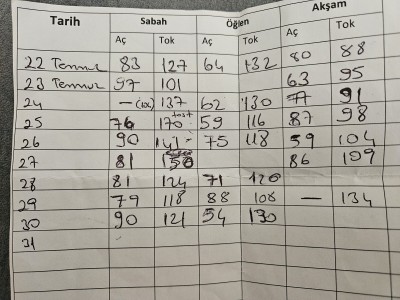 Tarih Sabah Öğlen Akşam
Aç Tok Aç Tok Aç Tok
22 Temmuz 83 127 64 132 80 88
23 Temmuz 97 101 63 95
24 — 137 62 130 77 91
25 76 170 tost 59 116 87 98
26 90 141 75 118 59 104
27 81 86 109
28 81 124 71 120
29 79 118 88 108 — 134
30 90 121 54 130
31